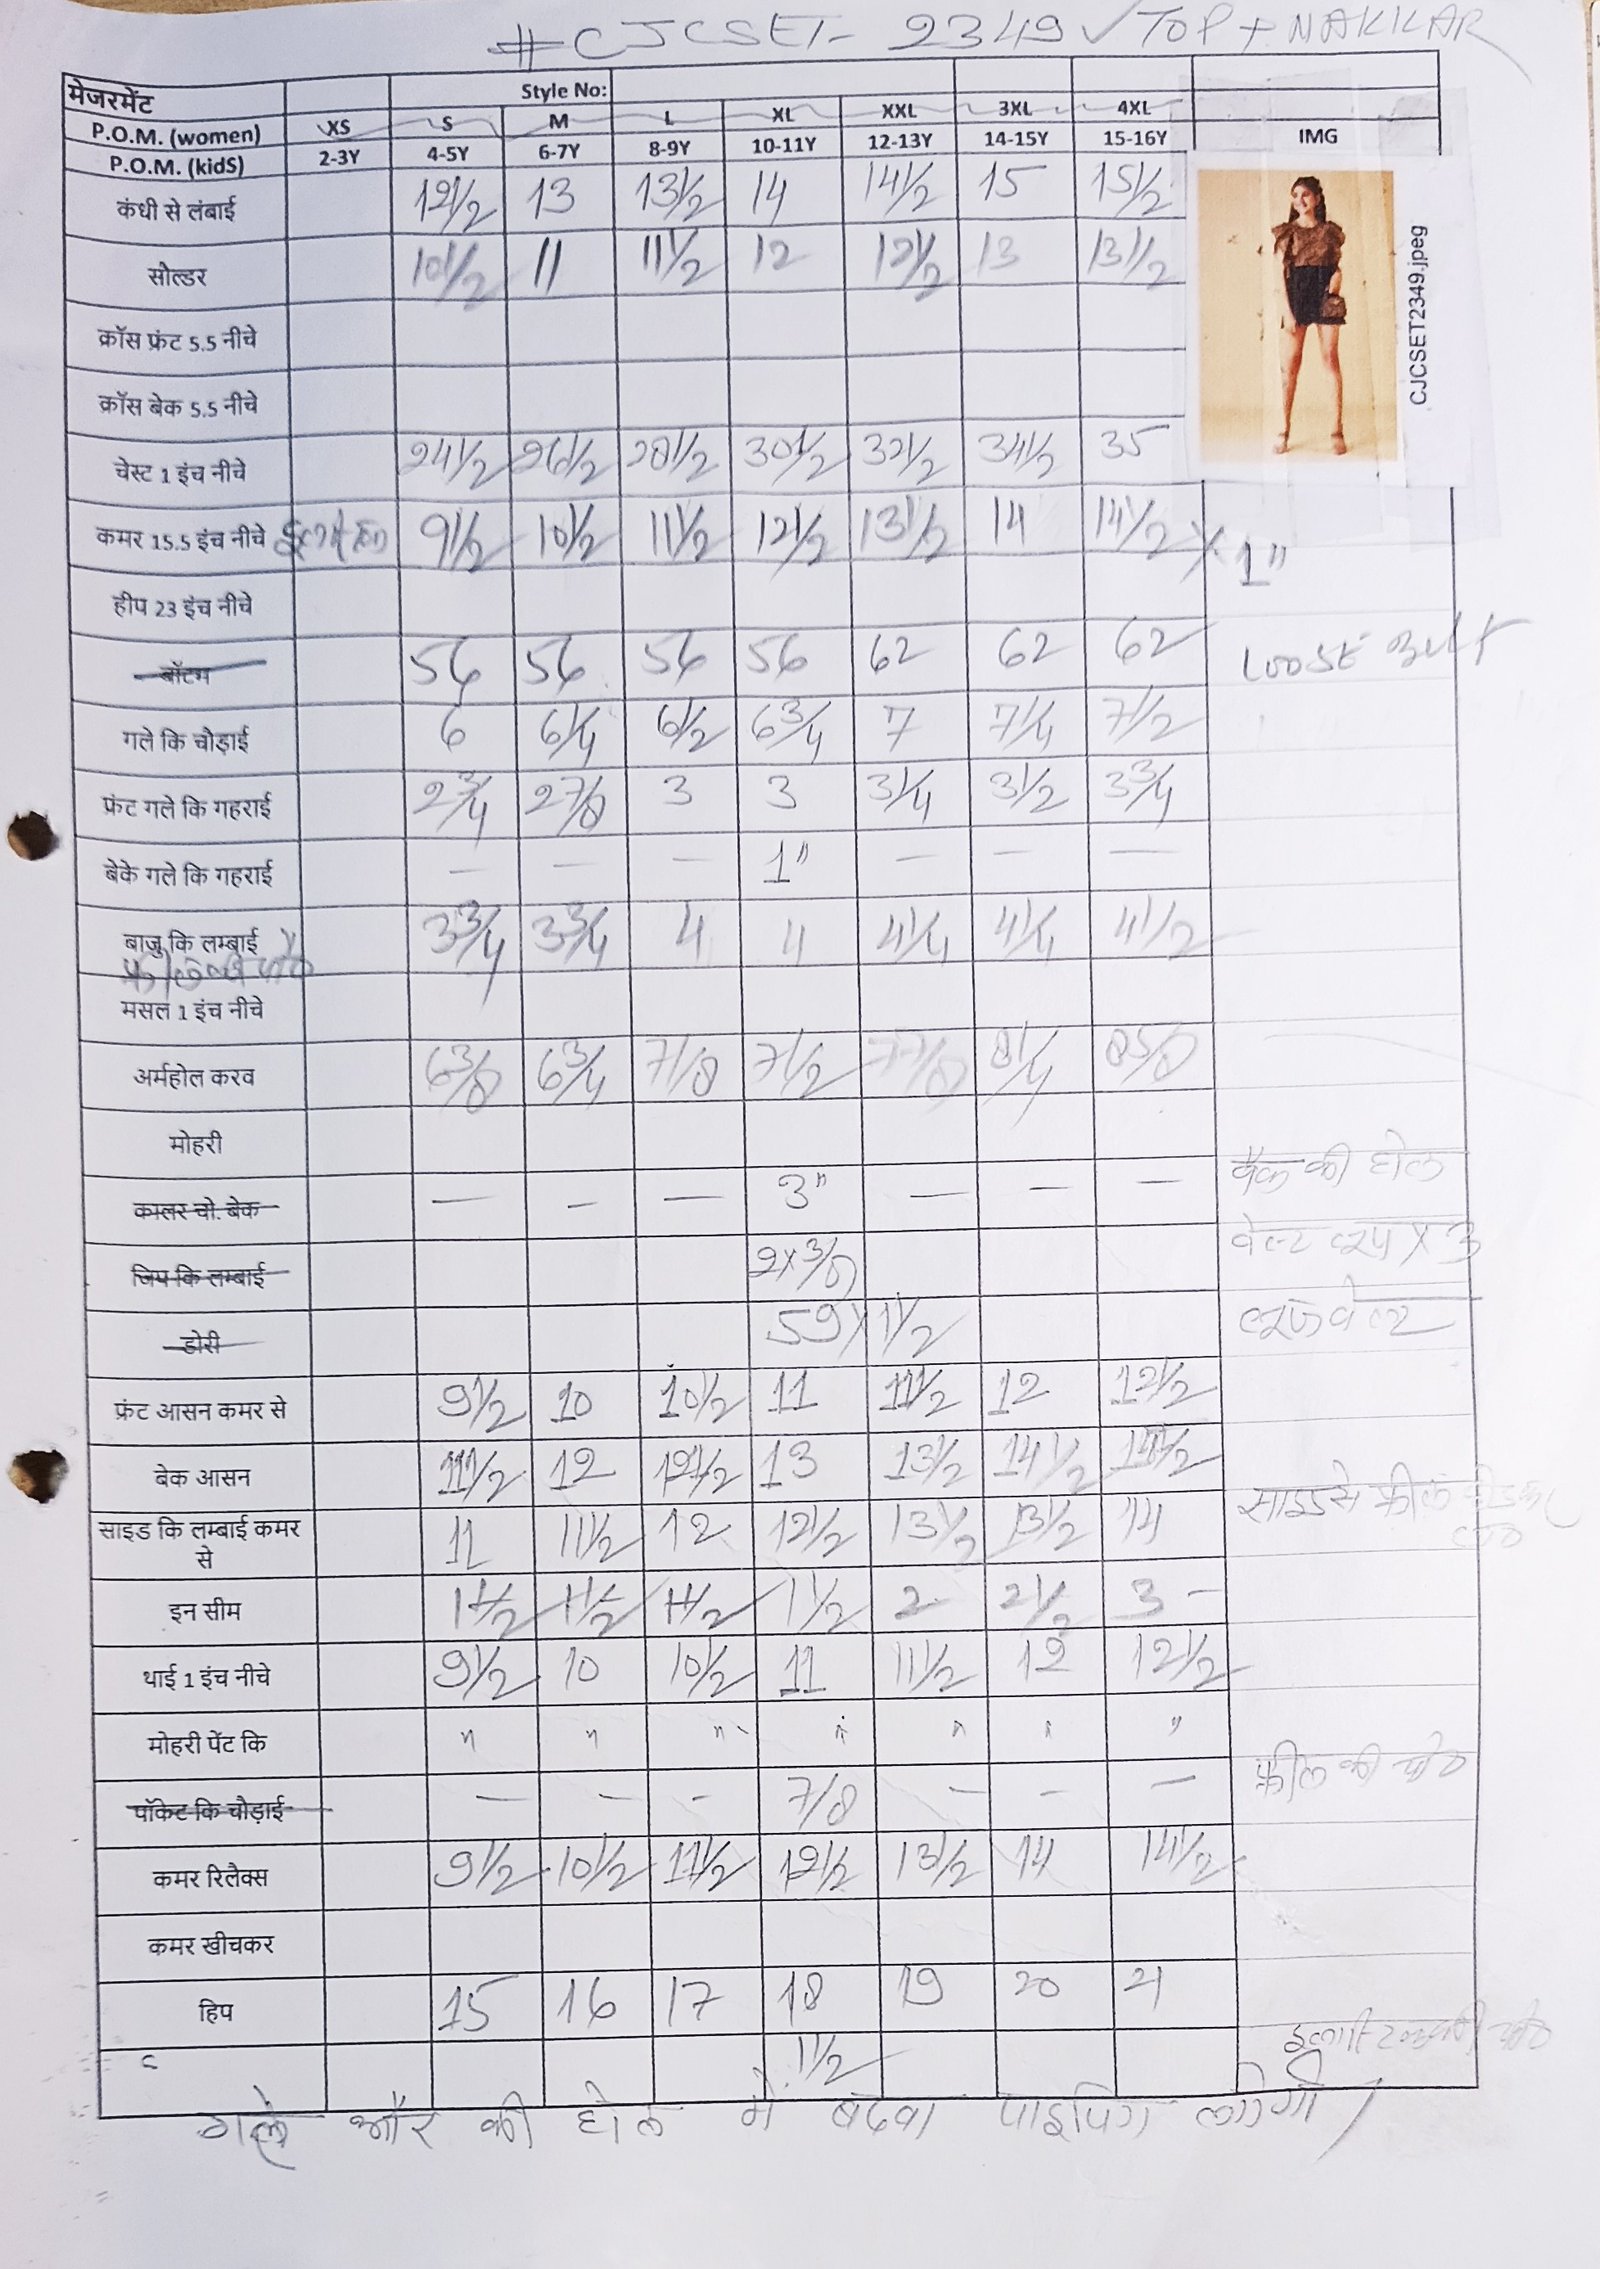 #CJCSET- 2349 ✓ TOP + NAKKAR
मेजरमेंट Style No:
P.O.M. (women) XS S M L XL XXL 3XL 4XL
P.O.M. (kidS) 2-3Y 4-5Y 6-7Y 8-9Y 10-11Y 12-13Y 14-15Y 15-16Y IMG
कंधी से लंबाई 12 1/2 13 13 1/2 14 14 1/2 15 15 1/2
CJCSET2349.jpeg
सोल्डर 10 1/2 11 11 1/2 12 12 1/2 13 13 1/2
क्रॉस फ्रंट 5.5 नीचे
क्रॉस बेक 5.5 नीचे
चेस्ट 1 इंच नीचे 24 1/2 26 1/2 28 1/2 30 1/2 32 1/2 34 1/2 35
कमर 15.5 इंच नीचे 9 1/2 10 1/2 11 1/2 12 1/2 13 1/2 14 14 1/2 X 1"
हीप 23 इंच नीचे
बॉटम 56 56 56 56 62 62 62 LOOSE
गले कि चौड़ाई 6 6 1/4 6 1/2 6 3/4 7 7 1/4 7 1/2
फ्रंट गले कि गहराई 2 3/4 2 7/8 3 3 3 1/4 3 1/2 3 3/4
बेके गले कि गहराई — — — 1" — — —
बाजु कि लम्बाई 3 3/4 3 3/4 4 4 4 1/4 4 1/4 4 1/2
मसल 1 इंच नीचे
अर्महोल करव 6 3/8 6 3/4 7 1/8 7 1/2 7 7/8 8 1/4 8 5/8
मोहरी
बैक की होल
कालर चो. बेक — — — 3" — — —
बेल्ट लूप X 3
जिप कि लम्बाई 2 x 3/8
डोरी 59 x 1 1/2 लूज बेल्ट
फ्रंट आसन कमर से 9 1/2 10 10 1/2 11 11 1/2 12 12 1/2
बेक आसन 11 1/2 12 12 1/2 13 13 1/2 14 1/2 14 1/2
साइड कि लम्बाई कमर से 11 11 1/2 12 12 1/2 13 1/2 13 1/2 14 साइड से फ्रील
इन सीम 1 1/2 1 1/2 1 1/2 1 1/2 2 2 1/2 3 -
थाई 1 इंच नीचे 9 1/2 10 10 1/2 11 11 1/2 12 12 1/2
मोहरी पेंट कि " " " " " " "
पॉकेट कि चौड़ाई — — - 7/8 — - — फ्रील की चौ०
कमर रिलैक्स 9 1/2 10 1/2 11 1/2 12 1/2 13 1/2 14 14 1/2
कमर खीचकर
हिप 15 16 17 18 19 20 21
1 1/2
गले और की होल में बटवा पाइपिंग लगेगी